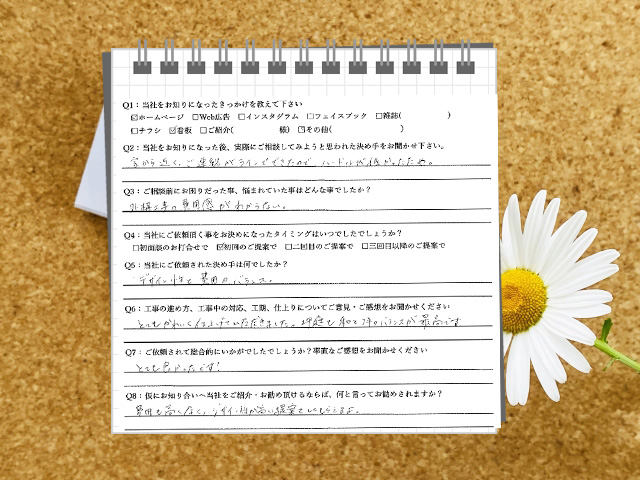 Q1：当社をお知りになったきっかけを教えて下さい
☑ホームページ □Web広告 □インスタグラム □フェイスブック □雑誌( )
□チラシ ☑看板 □ご紹介( 様) □その他( )
Q2：当社をお知りになった後、実際にご相談してみようと思われた決め手をお聞かせ下さい。
家から近く、ご連絡がラインでできたので、ハードルが低かったため。
Q3：ご相談前にお困りだった事、悩まれていた事はどんな事でしたか？
外構工事の費用感がわからない。
Q4：当社にご依頼頂く事をお決めになったタイミングはいつでしたでしょうか？
□初面談のお打合せで ☑初回のご提案で □二回目のご提案で □三回目以降のご提案で
Q5：当社にご依頼された決め手は何でしたか？
デザイン性と費用のバランス。
Q6：工事の進め方、工事中の対応、工期、仕上りについてご意見・ご感想をお聞かせください
とてもきれいに仕上げていただきました。坪庭も和と洋のバランスが最高です
Q7：ご依頼されて総合的にいかがでしたでしょうか？率直なご感想をお聞かせください
とても良かったです！
Q8：仮にお知り合いへ当社をご紹介・お勧め頂けるならば、何と言ってお勧めされますか？
費用も高くなく、デザイン性が高い提案をしてもらえるよ。